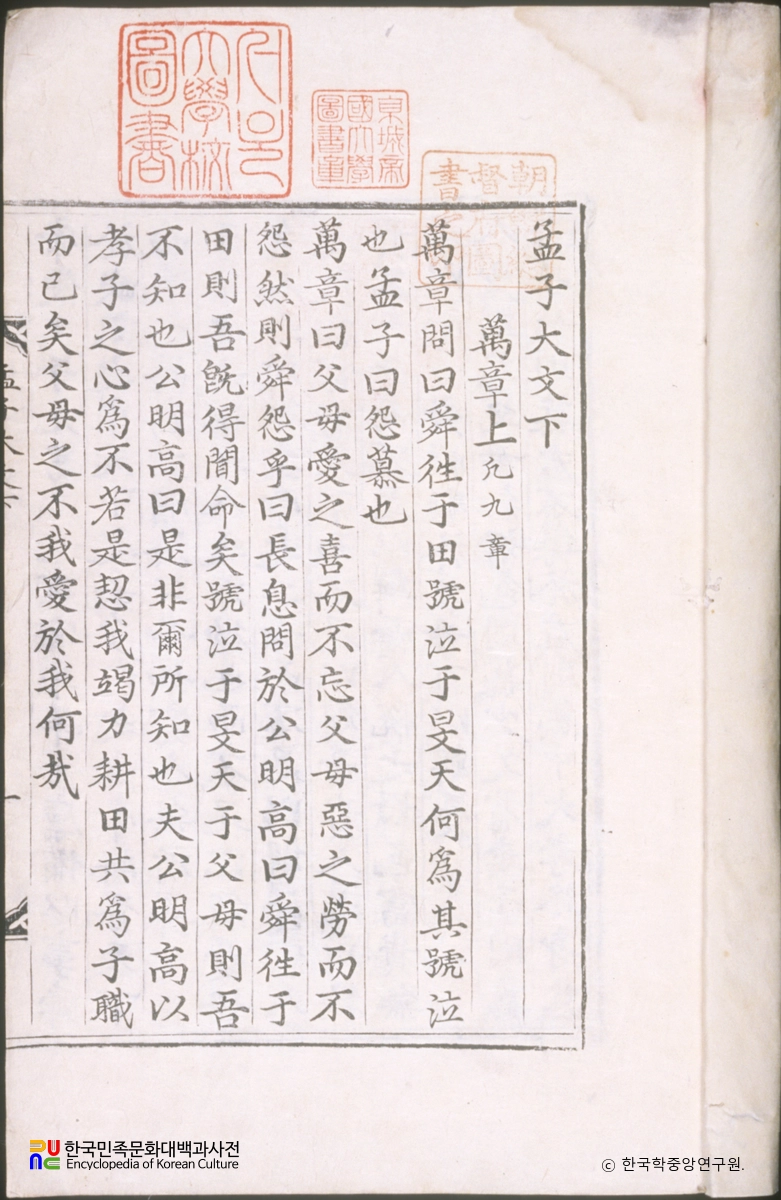 孟子大文下
萬章上 凡九章
萬章問曰舜徃于田號泣于旻天何爲其號泣
也孟子曰怨慕也
萬章曰父母愛之喜而不忘父母惡之勞而不
怨然則舜怨乎曰長息問於公明高曰舜徃于
田則吾旣得聞命矣號泣于旻天于父母則吾
不知也公明高曰是非爾所知也夫公明高以
孝子之心爲不若是恝我竭力耕田共爲子職
而已矣父母之不我愛於我何㦲
서울
大學校
圖書
京城帝
國大學
圖書章
朝鮮總
督府圖
書之印
한국민족문화대백과사전
Encyclopedia of Korean Culture
ⓒ 한국학중앙연구원.